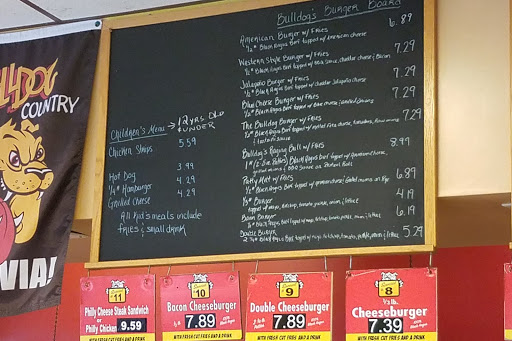 BULLDOG
COUNTRY
VIA!
Bulldog's Burger Board
American Burger w/ Fries 6.89
1/2# Black Angus Beef topped w/ American cheese
Western Style Burger w/ Fries 7.29
1/2# Black Angus Beef topped w/ BBQ Sauce, cheddar cheese & Bacon
Jalapeño Burger w/ Fries 7.29
1/2# Black Angus Beef topped w/ cheddar Jalapeño cheese
Blue Cheese Burger w/ Fries 7.29
1/2# Black Angus Beef topped w/ Blue cheese
The Bulldog Burger w/ Fries 7.29
1/2# Black Angus Beef topped w/ cheese, tomatoes,
Bulldog's Raging Bull w/ Fries 8.99
Black Angus Beef topped w/
Patty Melt w/ Fries 6.89
1/2# Black Angus Beef topped w/ onions on Rye
Burger 4.19
topped w/ mayo, ketchup, tomato, pickle, onion, & lettuce
Bacon Burger 6.19
Black Angus Beef topped w/ mayo, ketchup, tomato, pickle, onion & lettuce
Double Burger 5.29
Black Angus Beef topped w/ mayo, ketchup, tomato, pickle, onion & lettuce
Children's Menu → 12 yrs. old & under
Chicken Strips 5.59
3.99
Hot Dog 4.29
1/4# Hamburger 4.29
Grilled Cheese
All kid's meals include
fries & small drink
11
Philly Cheese Steak Sandwich
or
Philly Chicken 9.59
WITH FRESH CUT FRIES AND A DRINK
10
Bacon Cheeseburger
7.89
WITH FRESH CUT FRIES AND A DRINK
9
Double Cheeseburger
7.89
WITH FRESH CUT FRIES AND A DRINK
8
1/3 lb.
Cheeseburger
7.39
WITH FRESH CUT FRIES AND A DRINK